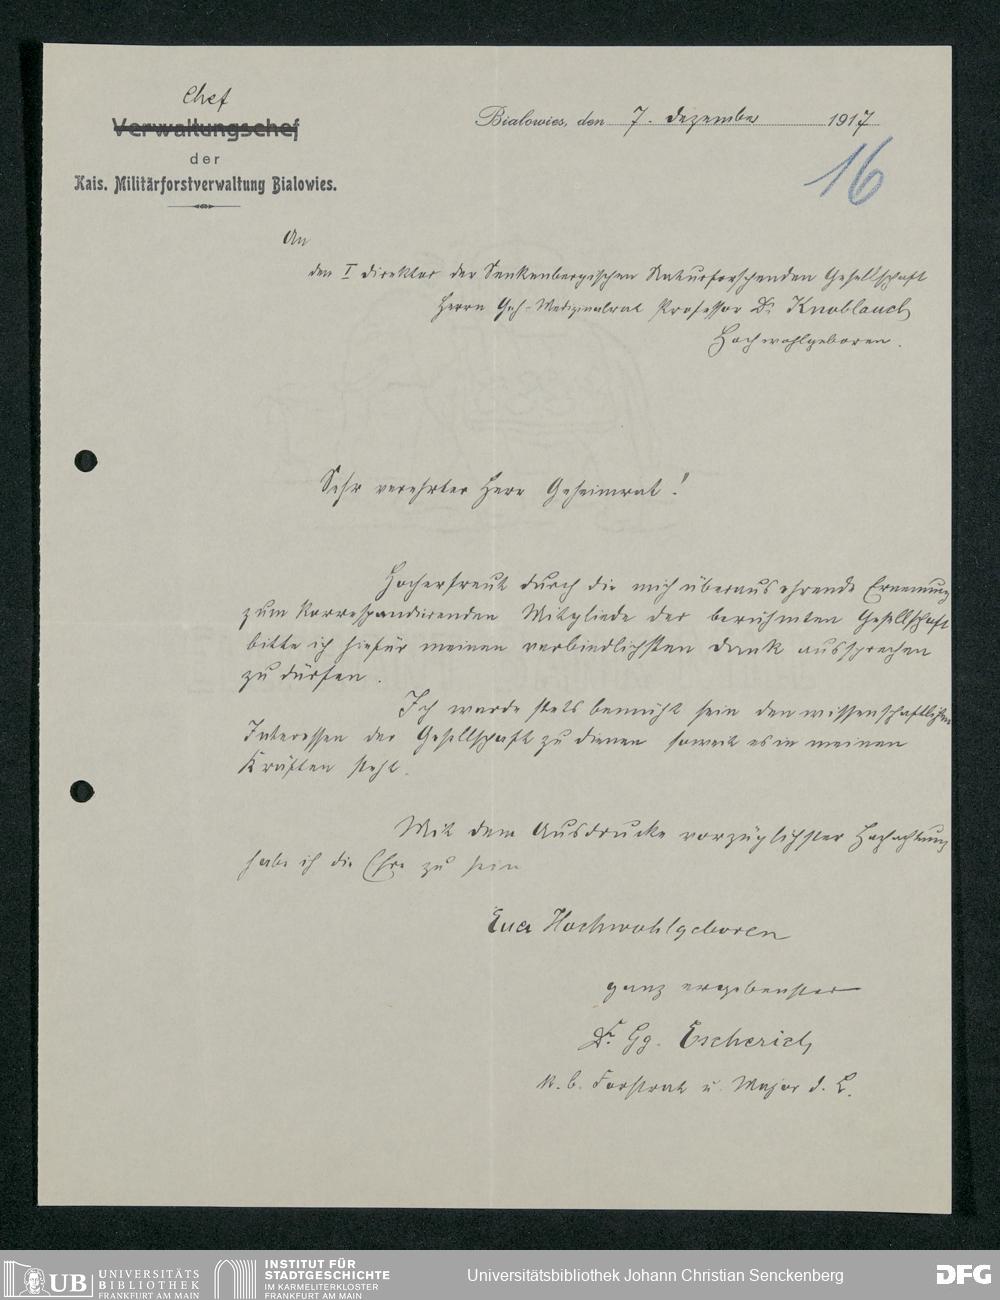 Chef
Verwaltungschef
der
Kais. Militärforstverwaltung Bialowies.
Bialowies, den 7. Dezember 1917
16
An
den I Direktor der Senkenbergischen Naturforschenden Gesellschaft
Herrn Geh-Medizinalrat Professor Dr Knoblauch
Hochwohlgeboren.
Sehr verehrter Herr Geheimrat!
Hocherfreut durch die mich überaus ehrende Ernennung
zum korrespondierenden Mitgliede der berühmten Gesellschaft
bitte ich hiefür meinen verbindlichsten Dank aussprechen
zu dürfen.
Ich werde stets bemüht sein den wissenschaftlichen
Interessen der Gesellschaft zu dienen soweit es in meinen
Kräften steht.
Mit dem Ausdrucke vorzüglichster Hochachtung
habe ich die Ehre zu sein
Euer Hochwohlgeboren
ganz ergebenster
Dr. Gg. Escherich
K. b. Forstrat u. Major d. L.
UB UNIVERSITÄTS
BIBLIOTHEK
FRANKFURT AM MAIN
INSTITUT FÜR
STADTGESCHICHTE
IM KARMELITERKLOSTER
FRANKFURT AM MAIN
Universitätsbibliothek Johann Christian Senckenberg
DFG